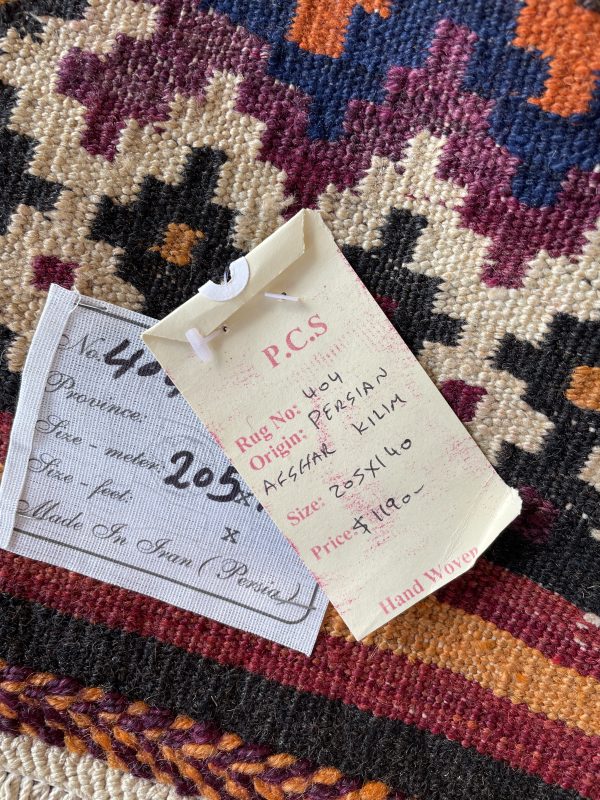 No. 404
Province:
Size - meter: 205x
Size - feet: x
Made In Iran (Persia)
P.C.S
Rug No: 404
Origin: PERSIAN
AFSHAR KILIM
Size: 205x140
Price: $1190-
Hand Woven